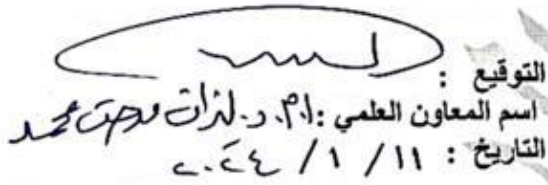 التوقيع :
اسم المعاون العلمي : ا.م.د. لذات مدحت محمد
التاريخ : ١١ / ١ / ٢٠٢٤